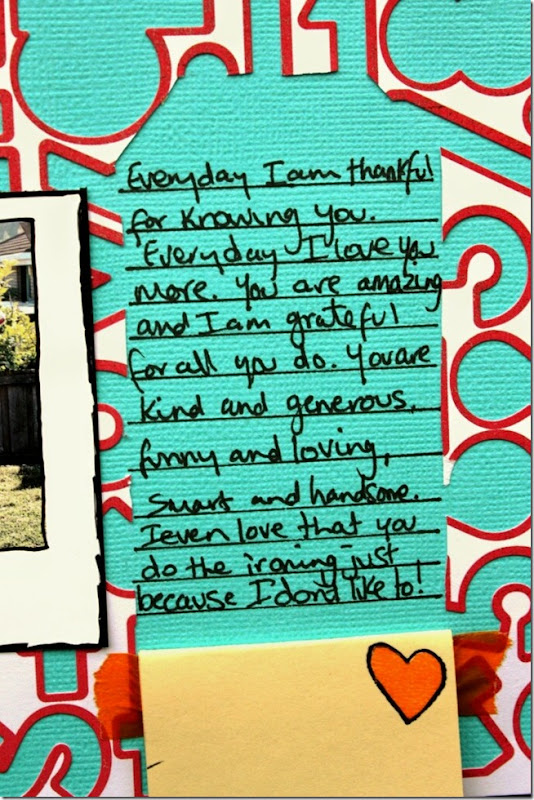 Everyday I am thankful
for knowing you.
Everyday I love you
more. You are amazing
and I am grateful
for all you do. You are
kind and generous,
funny and loving,
smart and handsome.
I even love that you
do the ironing just
because I don't like to!